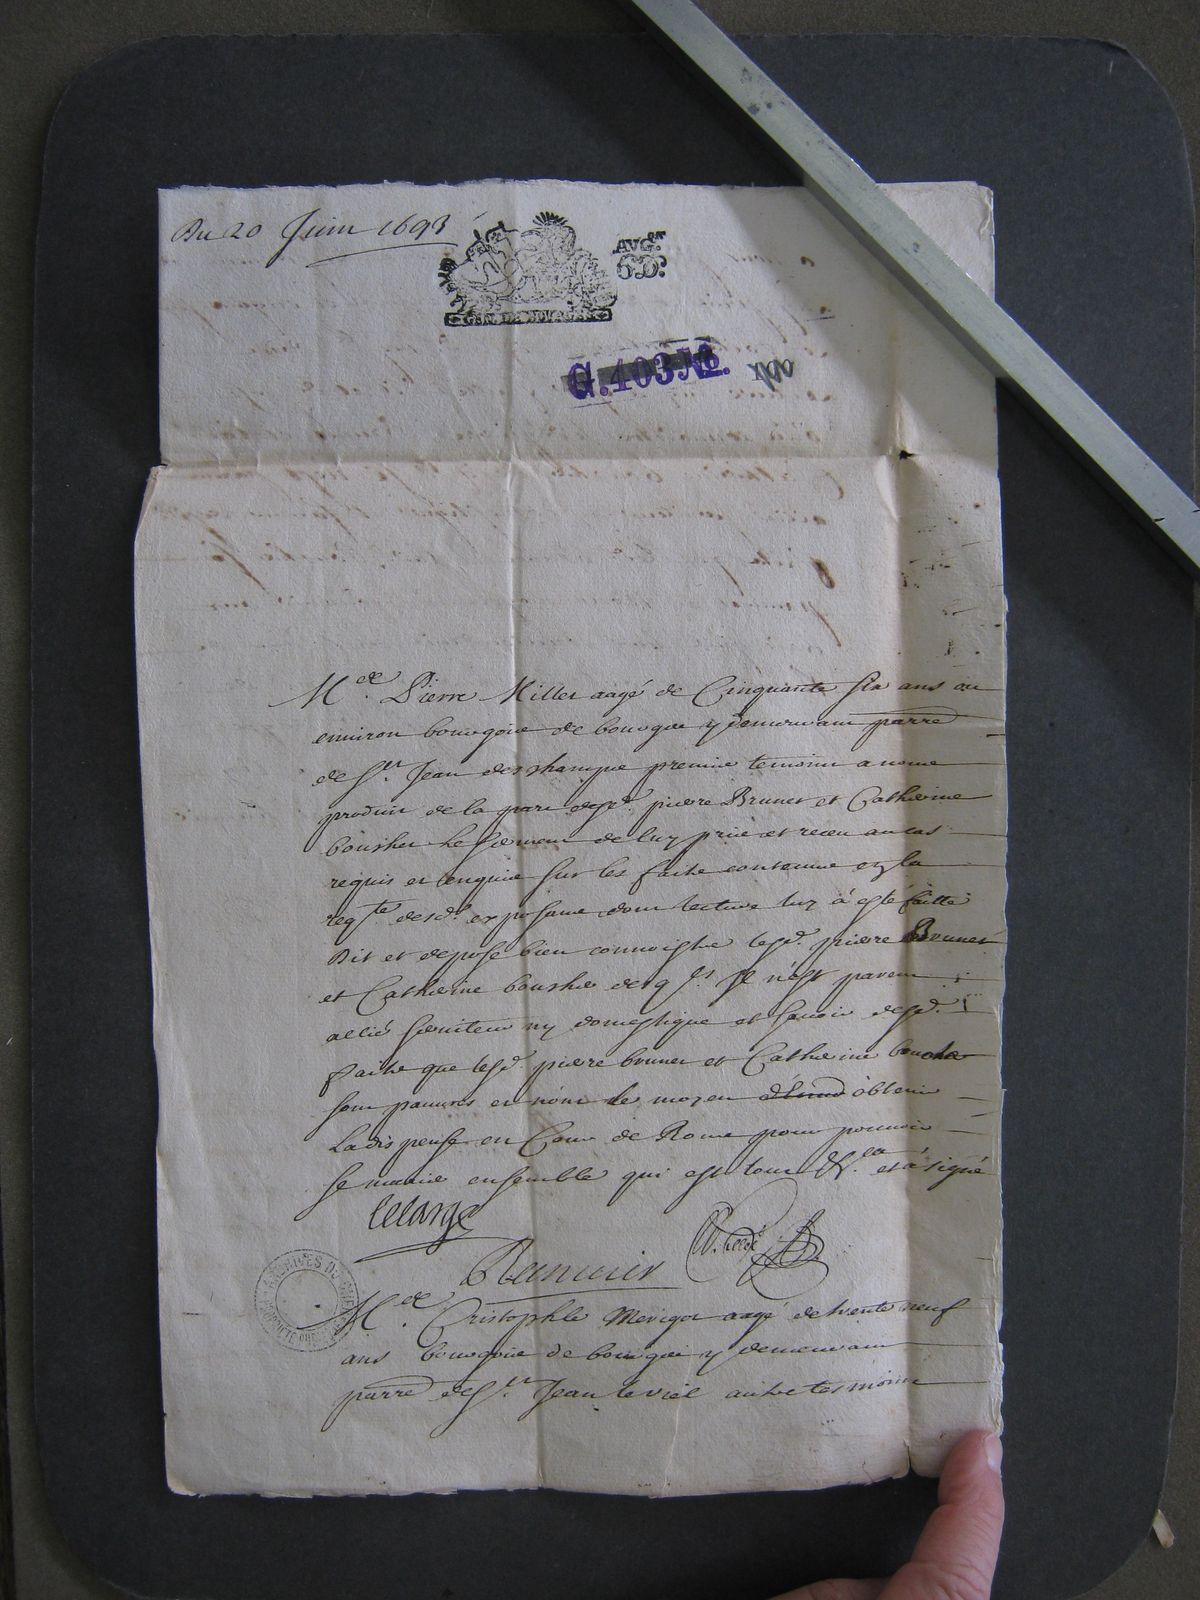 Du 20 Juin 1693
AVGT.
6 D:
GEN. DE BOVRGES
G. 403 No.
Mde. Pierre Millet aagé de Cinquante six ans ou
environ bourgois de bourges y demeurant parre
de St. Jean des champs premier temoin a nous
produit de la part desd. pierre Brunet et Catherine
boucher le serment de luy pris et receu au cas
requis et enquis sur les faits contenus en la
reqte. desd. exposans dont lecture luy à esté faitte
Dit et depose bien connoistre lesd. pierre Brunet
et Catherine boucher desqls. Il n'est parent
allié serviteur ny domestique et scavoir desd.
faits que lesd. pierre brunet et Catherine boucher
sont pauvres et n'ont le moyen d'obtenir
La dispense en Cour de Rome pour pouvoir
se marier ensemble qui est tout et à signé
lelarge
Mde. Cristophle Merigot aagé de trente neuf
ans bourgois de bourges y demeurant
parre de St. Jean le viel autre tesmoin
ARCHIVES DU CHER